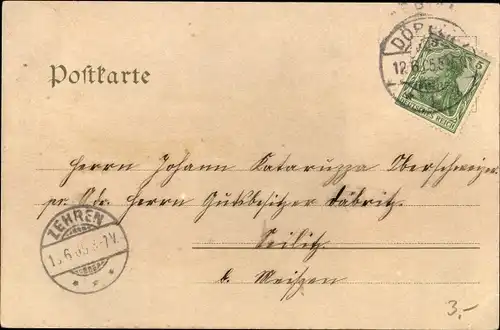 DÖBELN
12.6.05.5
5
DEUTSCHES REICH
Postkarte
Herrn Johann Kataruzza Oberschweizer
pr. Adr. Herrn Gutsbesitzer Däbritz
ZEHREN
13.6.05.6-7V.
Seilitz
b. Meißen
3,-